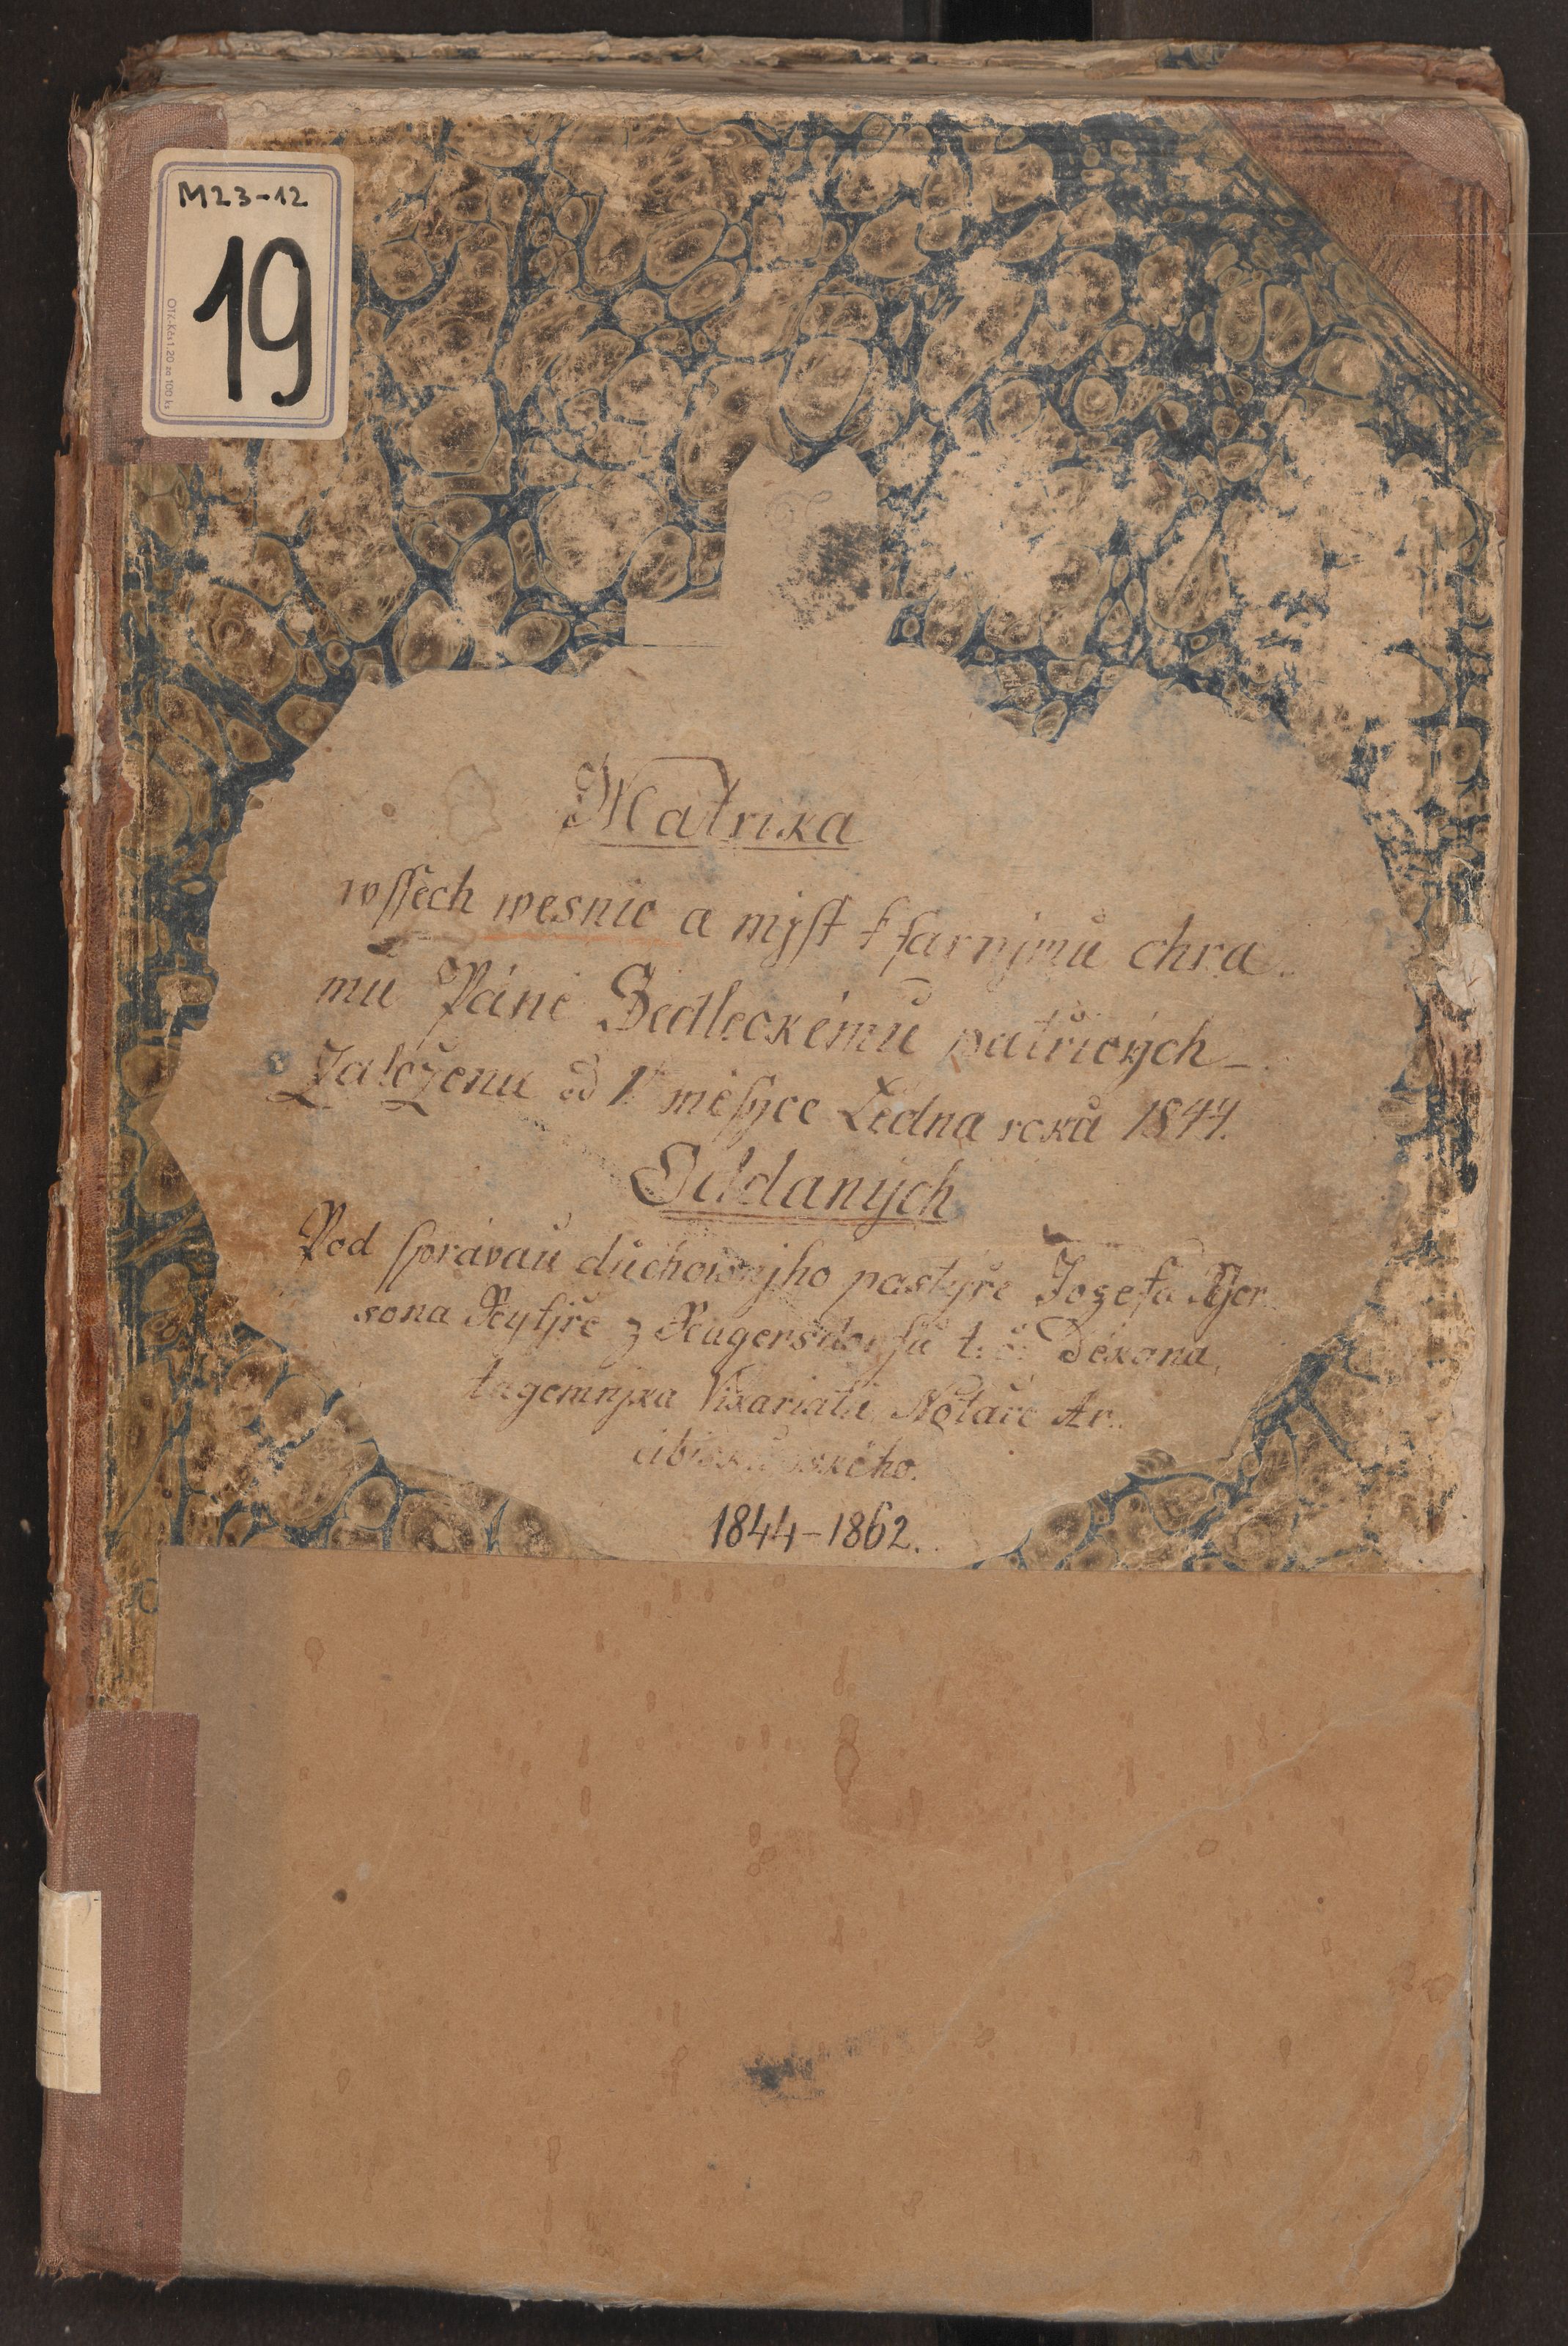 M23-12
19
OTK-Kčs 1,20 za 100 ks
Matrika
wssech wesnic a mjst k farnjmu chra-
mu Páně Sedleckému patřicých
Založena od 1. měsyce Ledna roku 1844.
Oddaných
Pod spráwau duchownjho pastýře Jozefa
sona Rytjře z Rugersdorfu t: č: Děkana,
tagemnjka Vikariatu, Notáře Ar-
cibiskupského.
1844-1862.